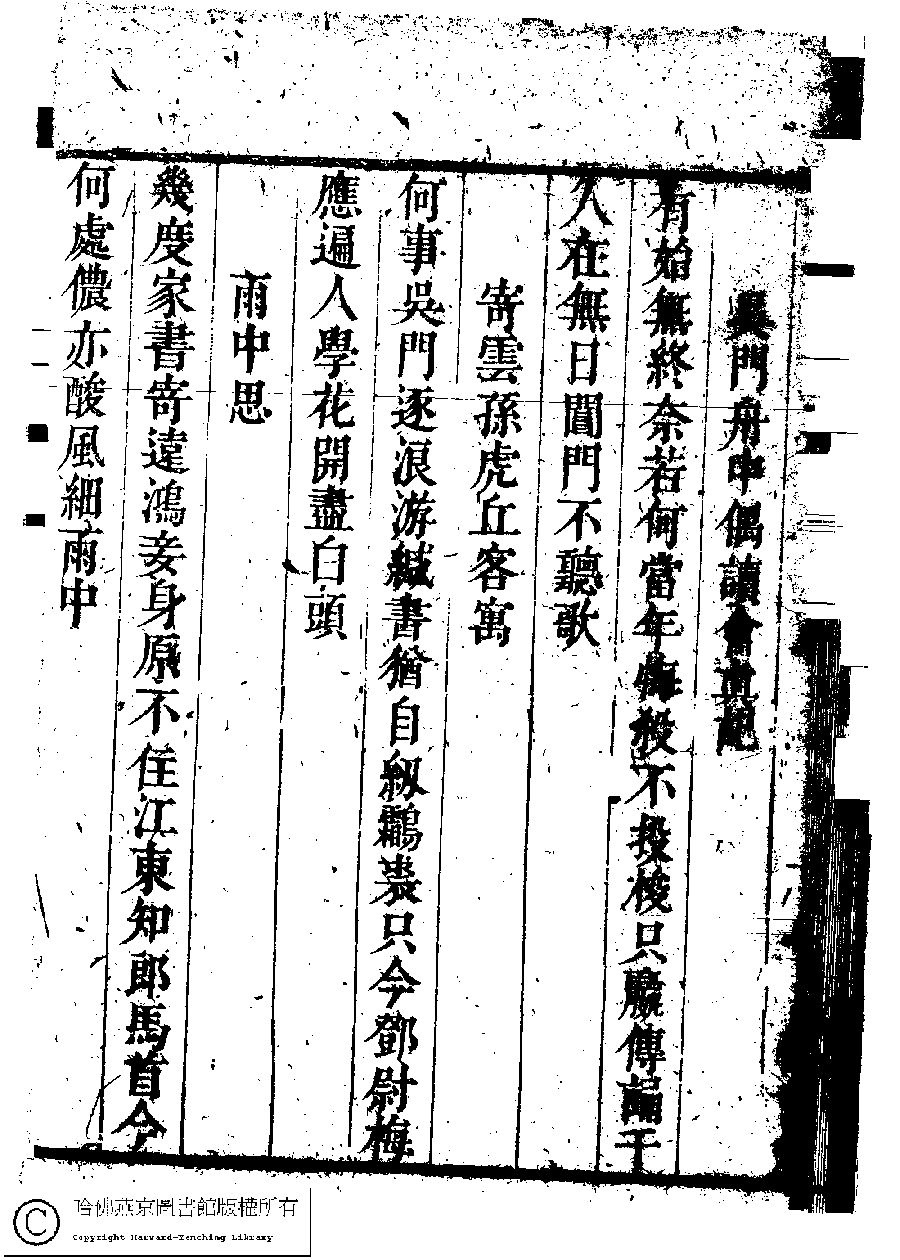 吳門舟中偶讀會真記
有始無終奈若何當年悔殺不投梭只
人在無日閶門不聽歌
寄雲孫虎丘客寓
何事吳門逐浪游緘書猶自紉鸘裘只今鄧尉梅
應遍人學花開盡白頭
雨中思
幾度家書寄遠鴻妾身原不住江東知郎馬首今
何處儂亦酸風細雨中
哈佛燕京圖書館版權所有
Copyright Harvard-Yenching Library